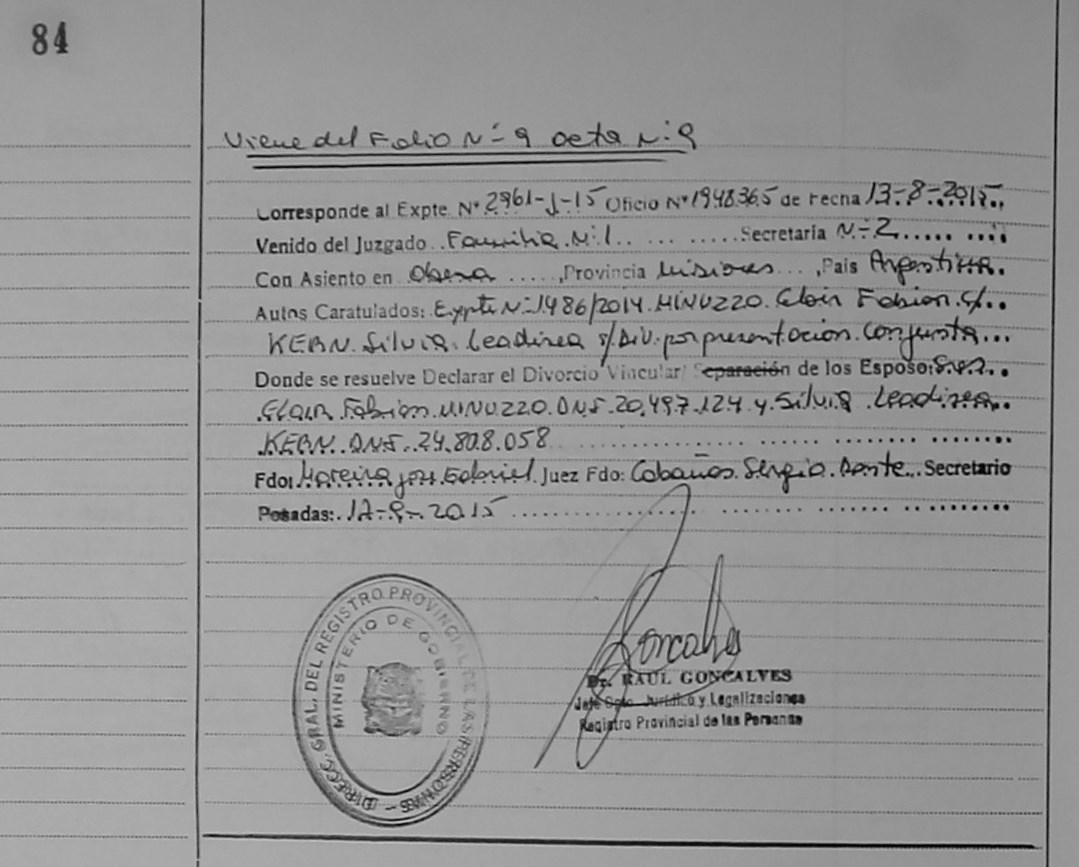 84
Viene del Folio Nº 9 acta Nº 9
Corresponde al Expte. Nº 2961-J-15 Oficio Nº 1948365 de Fecha 13-8-2015
Venido del Juzgado Familia Nº 1 Secretaria Nº 2
Con Asiento en Obera, Provincia Misiones, Pais Argentina.
Autos Caratulados: Expte Nº 1486/2014 MINUZZO Clair Fabian c/
KERN Silvia Leadinea s/Div. por presentacion Conjunta
Donde se resuelve Declarar el Divorcio Vincular/ Separación de los Esposo: Sres.
Clair Fabian MINUZZO DNI. 20.497.124 y Silvia Leadinea
KERN DNI. 24.808.058
Fdo: Moreira jose Gabriel Juez Fdo: Cabañas Sergio Dante Secretario
Posadas: 2015
DIRECC. GRAL. DEL REGISTRO PROVINCIAL DE LAS PERSONAS
MINISTERIO DE GOBIERNO
Goncalves
Dr. RAUL GONCALVES
Jefe Dpto. Jurídico y Legalizaciones
Registro Provincial de las Personas